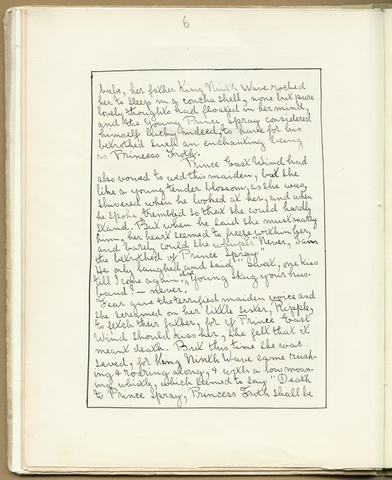 6
babe, her father King Ninth Wave rocked
her to sleep in a concha shell, none but pure
lovely thoughts had floated in her mind,
and the Young Prince Spray considered
himself lucky indeed to have for his
betrothed such an enchanting being
as Princess Froth.
Prince East Wind had
also vowed to wed this maiden, but she
like a young tender blossom, as she was,
shivered when he looked at her, and when
he spoke trembled so that she could hardly
stand. But when he said she must marry
him, her heart seemed to freeze within her,
and barely could she whisper "Never, I am
the betrothed of Prince Spray"
He only laughed and said, "Sweet, one kiss
till I come again."
band? — never."
Fear gave the terrified maiden voice and
she screamed on her little sister, Ripple,
to fetch their father, for if Prince East
Wind should kiss her, she felt that it
meant death. But this time she was
saved, for King Ninth Wave came rush-
ing & roaring along, & with a low moan-
ing whistle, which seemed to say "Death
to Prince Spray, Princess Froth shall be